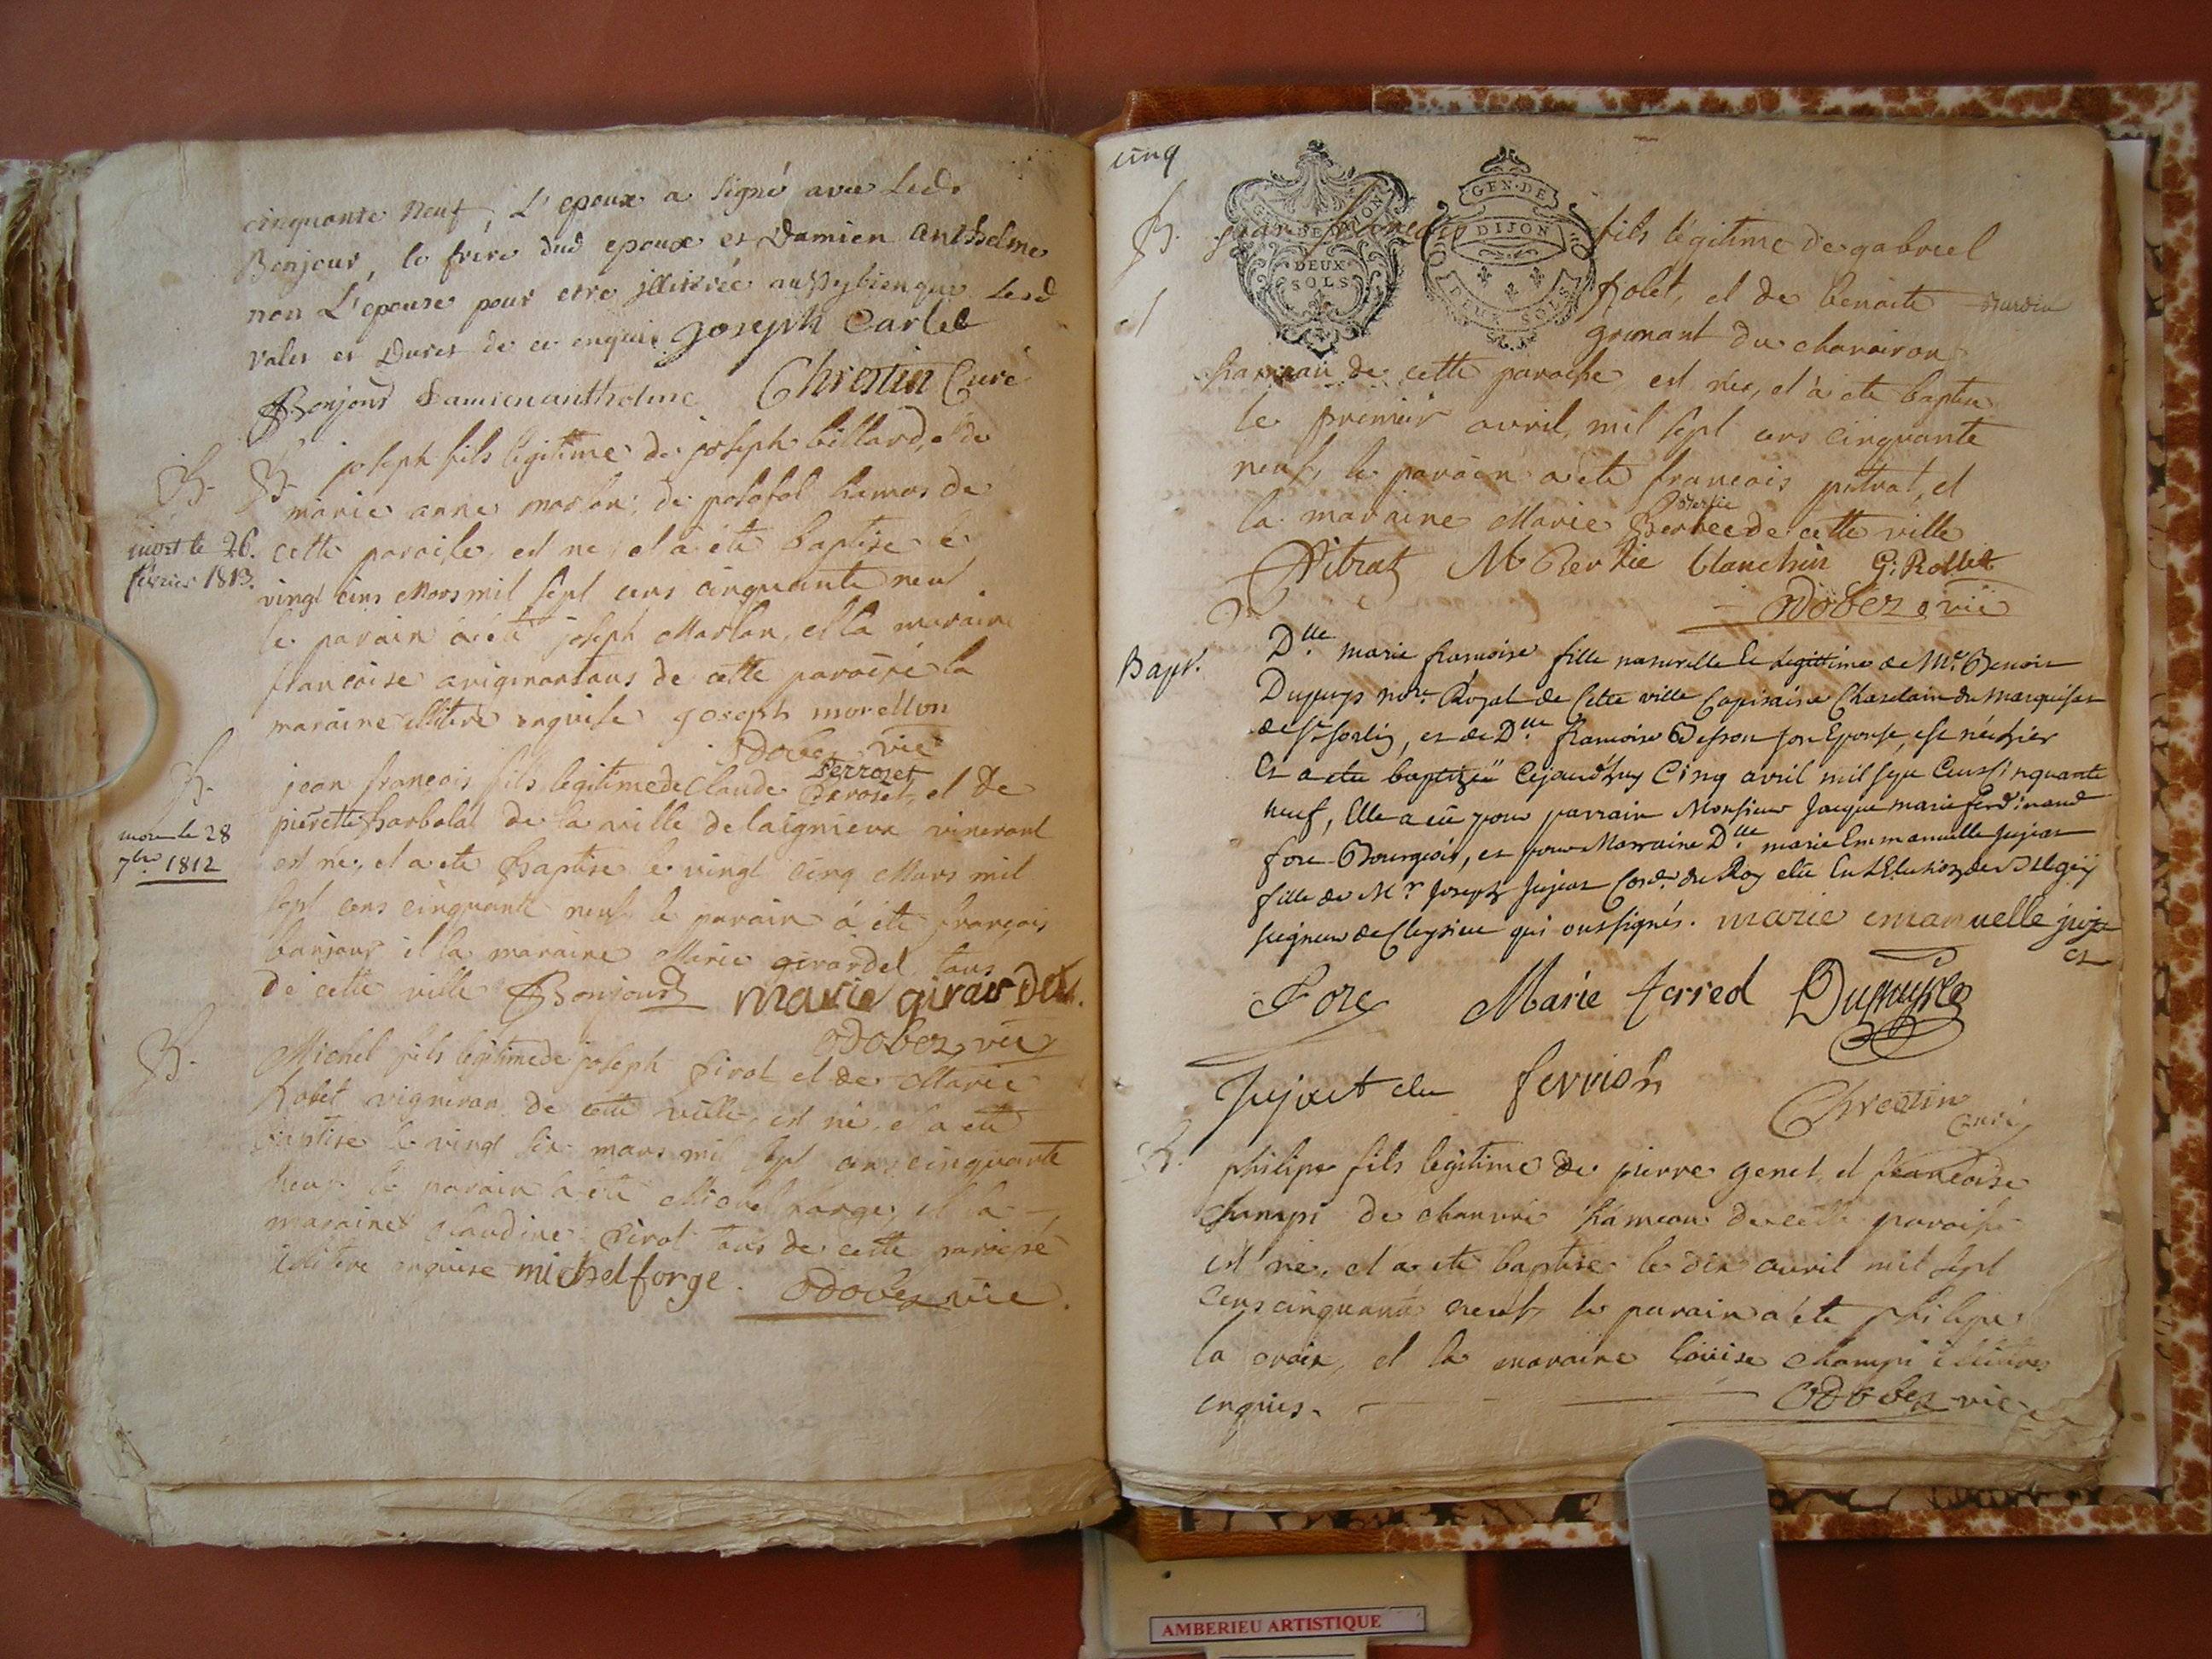 cinquante neuf, L'epoux a signé avec Led.
Bonjour, le frere dud epoux et Damien anthelme
non L'epouse pour etre illiterée aussy bien que Lesd
vales et Dures de ce enquis joseph Carlet
Bonjour Damien anthelme Chrestin Curé
B. B. joseph fils legitime de joseph billard, et de
marie anne morlon de posafol hamos de
mort le 26.
fevrier 1813.
cette paroise, est ne, et a ete baptise le
vingt cinq Mars mil sept cens cinquante neuf
le parain a ete joseph Morlon, et la maraine
francoise tous de cette paroise la
maraine illitere enquise joseph morellon
odobez vic
B. jean françois fils legitime de Claude Perrozet, et de
pierrette harbolal de la ville de laignieux vineront
more le 28
7bre 1812
est ne, et a ete Baptise le vingt cinq Mars mil
sept cens cinquante neuf le parain a ete françois
bonjour et la maraine Marie girardet tous
de cette ville Bonjour marie girardet.
odobez vic
B. Michel fils legitime de joseph sirot et de Marie
Rolet vigneron de cette ville, est ne, et a ete
baptise le vingt six mars mil sept cens cinquante
neuf le parain a ete Michel forge, et la
maraine claudine sirot tous de cette paroise
illitere enquise michel forge. odobez vic.
cinq
GEN. DE DIJON
DEUX SOLS
GEN. DE
DIJON
DEUX SOLS
B. jean francois fils legitime de gabriel
Rolet, et de benoite
grumant du chavairon
hameau de cette paroise est ne, et a ete baptise
le premier avril, mil sept cens cinquante
neuf, le parain a ete francois pitrat, et
la maraine Marie Bertie de cette ville
Pitrat M Bertie blanchin G: Rollet
odobez vic
Bapt.
Dlle. marie francoise fille naturelle Et Legittime de Me. Benoit
Dupuys nore. Royal de Cette ville Capitaine Chatelain du marquisat
de St sorlin, et de Dlle. francoise Besson son Epouse, est née hier
Et a ete baptizée Cejourdhuy Cinq avril mil sept Cens Cinquante
neuf, Elle a eu pour parrain Monsieur Jacque marie ferdinand
fore Bourgeois, et pour Marraine Dlle. marie Emmanuelle Jujat
fille de Mr. Joseph Jujat Coner. du Roy elu En L'Election de Bugey
seigneur de Cleyzieu qui ont signés. marie emanuelle juja
et
Fore Marie ferred Dupuys
Jujat elu ferrier
Chrestin
Curé
B. philipe fils legitime de pierre genet, et francoise
Champi de chauvri hameau de cette paroise
est ne, et a ete baptise le dix avril mil sept
Cens cinquante neuf, le parain a ete philipe
la croix, et la maraine louise champi illitires
enquis. odobez vic
AMBERIEU ARTISTIQUE